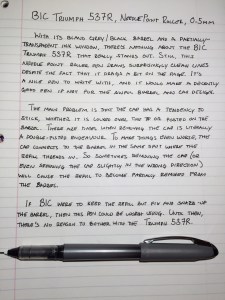 BIC TRIUMPH 537R, NEEDLE POINT ROLLER, 0.5MM
WITH ITS BLAND GRAY/BLACK BARREL AND A PARTIALLY-
TRANSPARENT INK WINDOW, THERE'S NOTHING ABOUT THE BIC
TRIUMPH 537R THAT REALLY STANDS OUT. STILL, THIS
NEEDLE POINT ROLLER PEN DRAWS SURPRISINGLY CLEAN LINES
DESPITE THE FACT THAT IT DRAGS A BIT ON THE PAGE. IT'S
A NICE PEN TO WRITE WITH, AND IT WOULD MAKE A DECENTLY
GOOD PEN IF NOT FOR THE AWFUL BARREL AND CAP DESIGN.
THE MAIN PROBLEM IS THAT THE CAP HAS A TENDENCY TO
STICK, WHETHER IT IS LOCKED OVER THE TIP OR POSTED ON THE
BARREL. THERE ARE TIMES WHEN REMOVING THE CAP IS LITERALLY
A DOUBLE-FISTED ENDEAVOUR. TO MAKE THINGS EVEN WORSE, THE
CAP CONNECTS TO THE BARREL IN THE SAME SPOT WHERE THE
REFILL THREADS IN. SO SOMETIMES REMOVING THE CAP (OR
EVEN TURNING THE CAP SLIGHTLY IN THE WRONG DIRECTION)
WILL CAUSE THE REFILL TO BECOME PARTIALLY REMOVED FROM
THE BARREL.
IF BIC WERE TO KEEP THE REFILL BUT FIX AND SHAPE UP
THE BARREL, THEN THIS PEN COULD BE WORTH USING. UNTIL THEN,
THERE'S NO REASON TO BOTHER WITH THE TRIUMPH 537R.